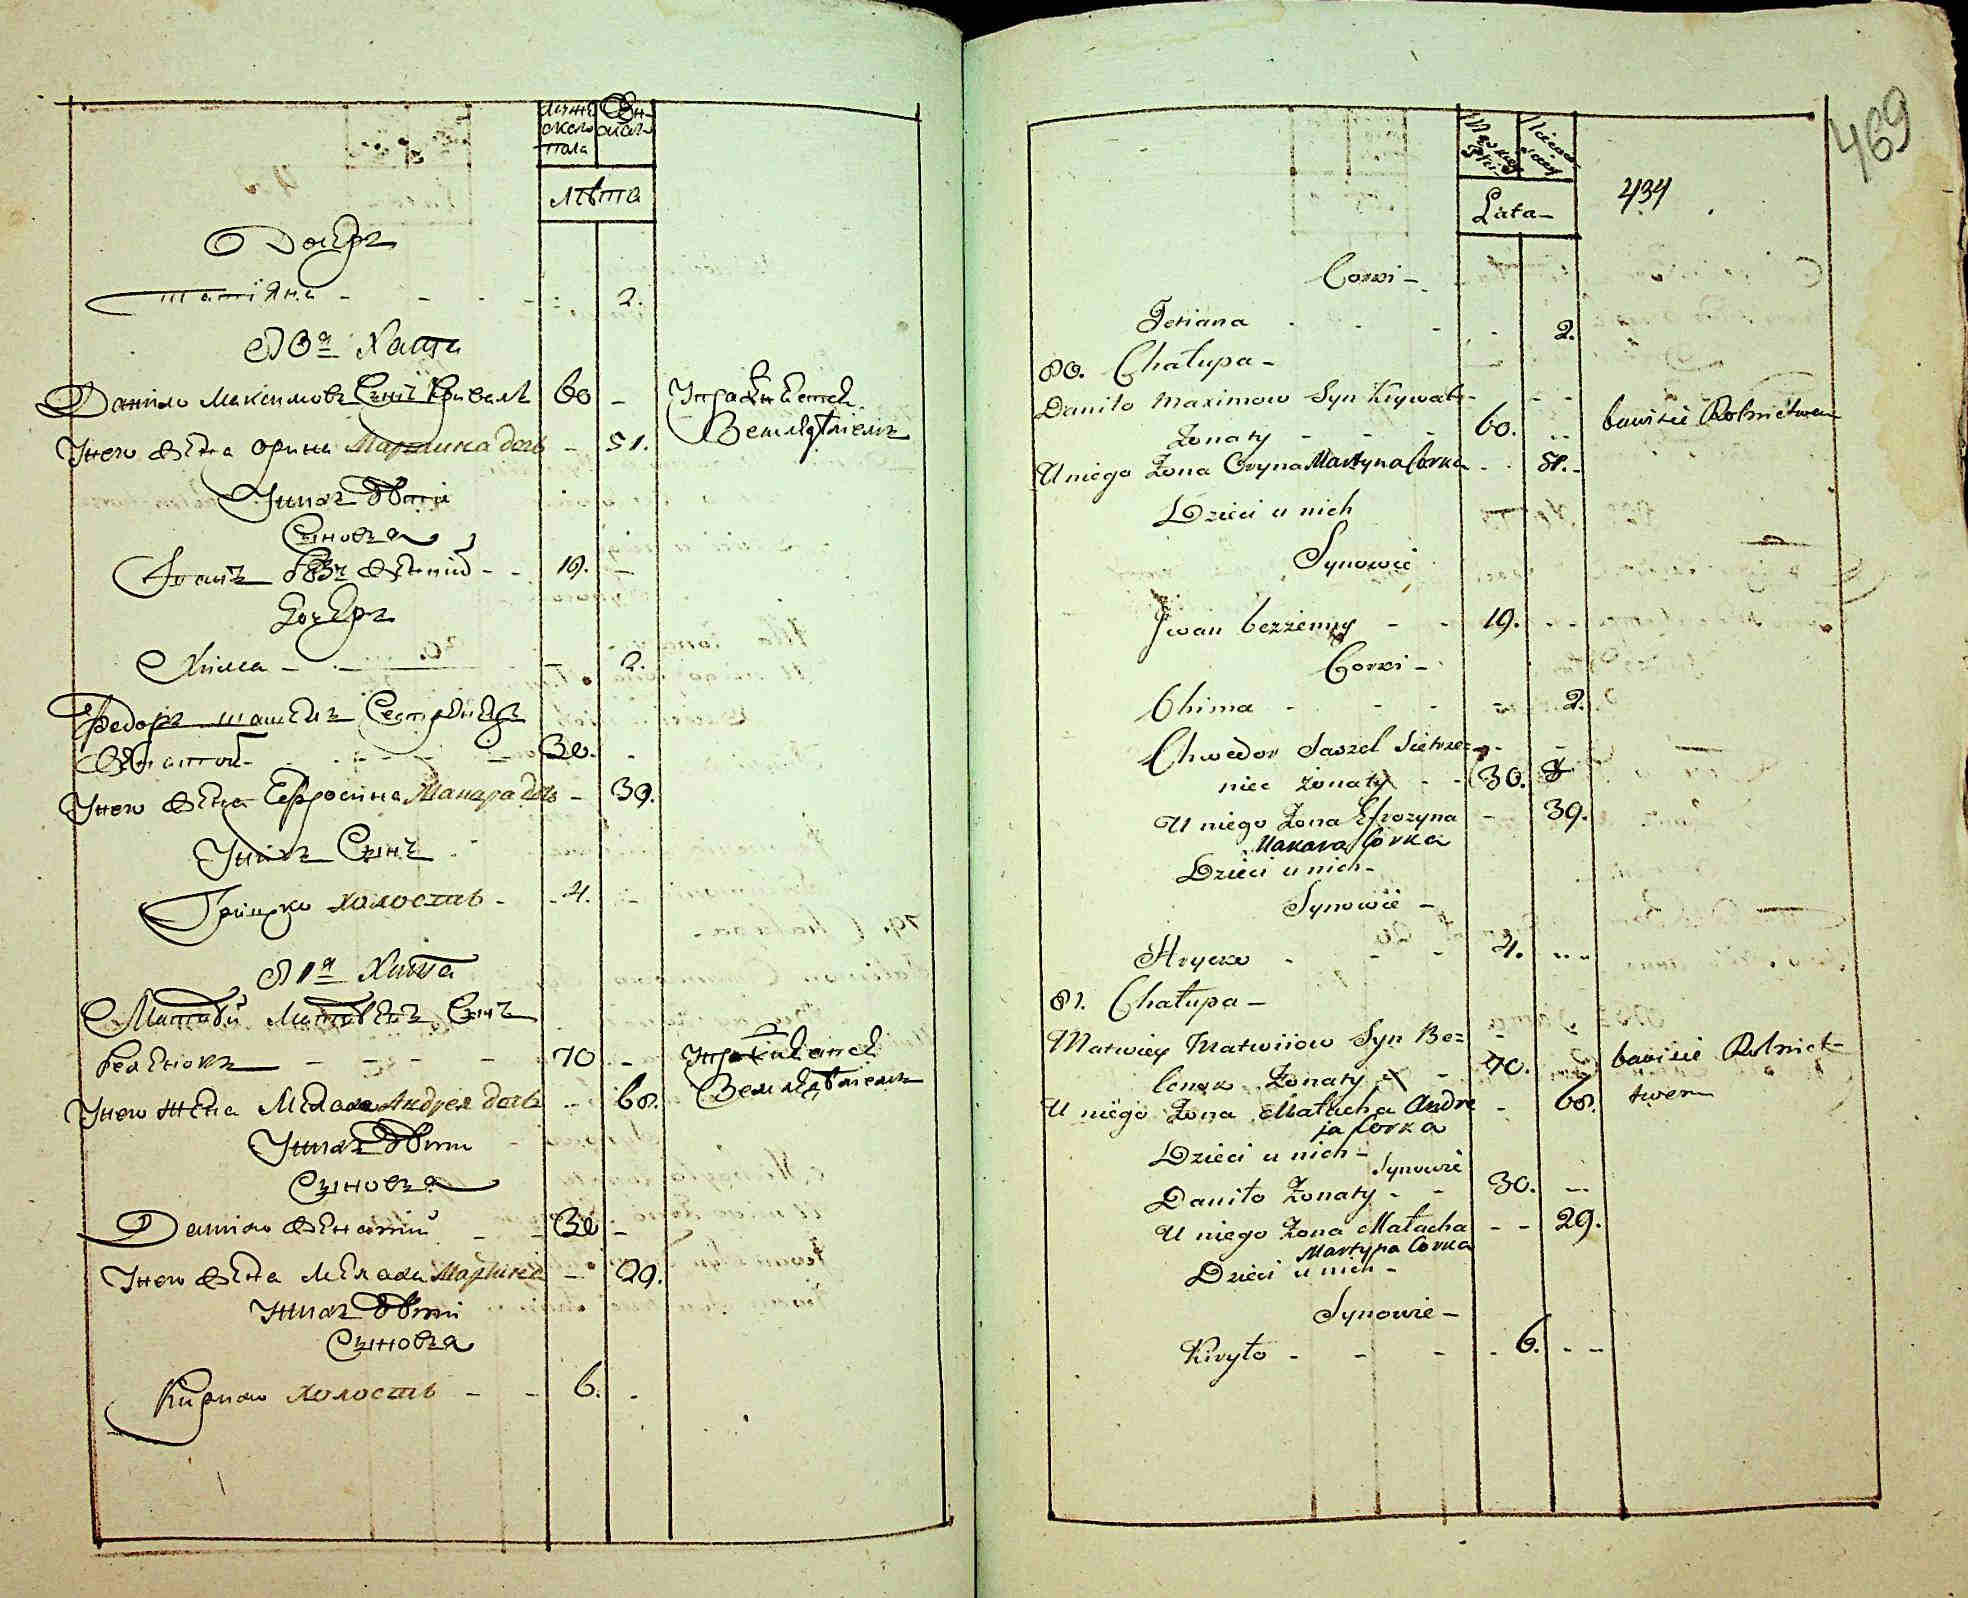 мужеска пола
женска
лѣта
Дочеръ
татіяна - - - - 2.
80я Хата
Данило Максимовъ Сынъ Кривалъ 60 -
Упражняется
Земледѣлiемъ
Унего жена орина Мартина дочь - 51.
Унихъ дѣти
Сыновья
Иванъ безъ женній - - 19. -
Дочеръ
Хима - - - 2.
Федоръ Сестренецъ
женатый - - - - 30. -
Унего жена Ефросина Макара дочь - 39.
Унихъ Сынъ
Грицко холостъ - - 4. -
81я Хата
Матвѣй Матвѣевъ Сынъ
- - - - 70 -
Упражняется
Земледѣлiемъ
Унего жена Мелаха Андрея дочь - 68.
Унихъ дѣти
Сыновья
Данило женатій - - 30 -
Унего жена Мелаха Мартина - 29.
Унихъ дѣти
Сыновья
Кирило холостъ - - 6. -
469
434
Lata -
Corki -
Tetiana - - - - 2.
80. Chałupa -
Daniło Maximow Syn Krywal - -
Żonaty - - - 60. - -
bawisie Rolnictwem
U niego Żona Oryna Martyna Corka - - 51. -
Dzieci u nich
Synowie
Jwan bezżenny - - 19. - -
Corki -
Chima - - - - - 2.
Chwedor Siestrze=
niec żonaty - - 30.
U niego Żona Efrozyna - 39.
Makara Córka
Dzieci u nich -
Synowie -
Hrycko - - - 4. - -
81. Chałupa -
Matwiey Matwiiow Syn Be=
lenok Żonaty - 70.
bawisie Rolnict=
twem
U niego Żona Małacha Andre - 68.
ja Corka
Dzieci u nich -
Synowie
Daniło Żonaty - - 30. - -
U niego Żona Małacha - - 29.
Martyna Corka
Dzieci u nich -
Synowie -
Kiryło - - - - 6. - -